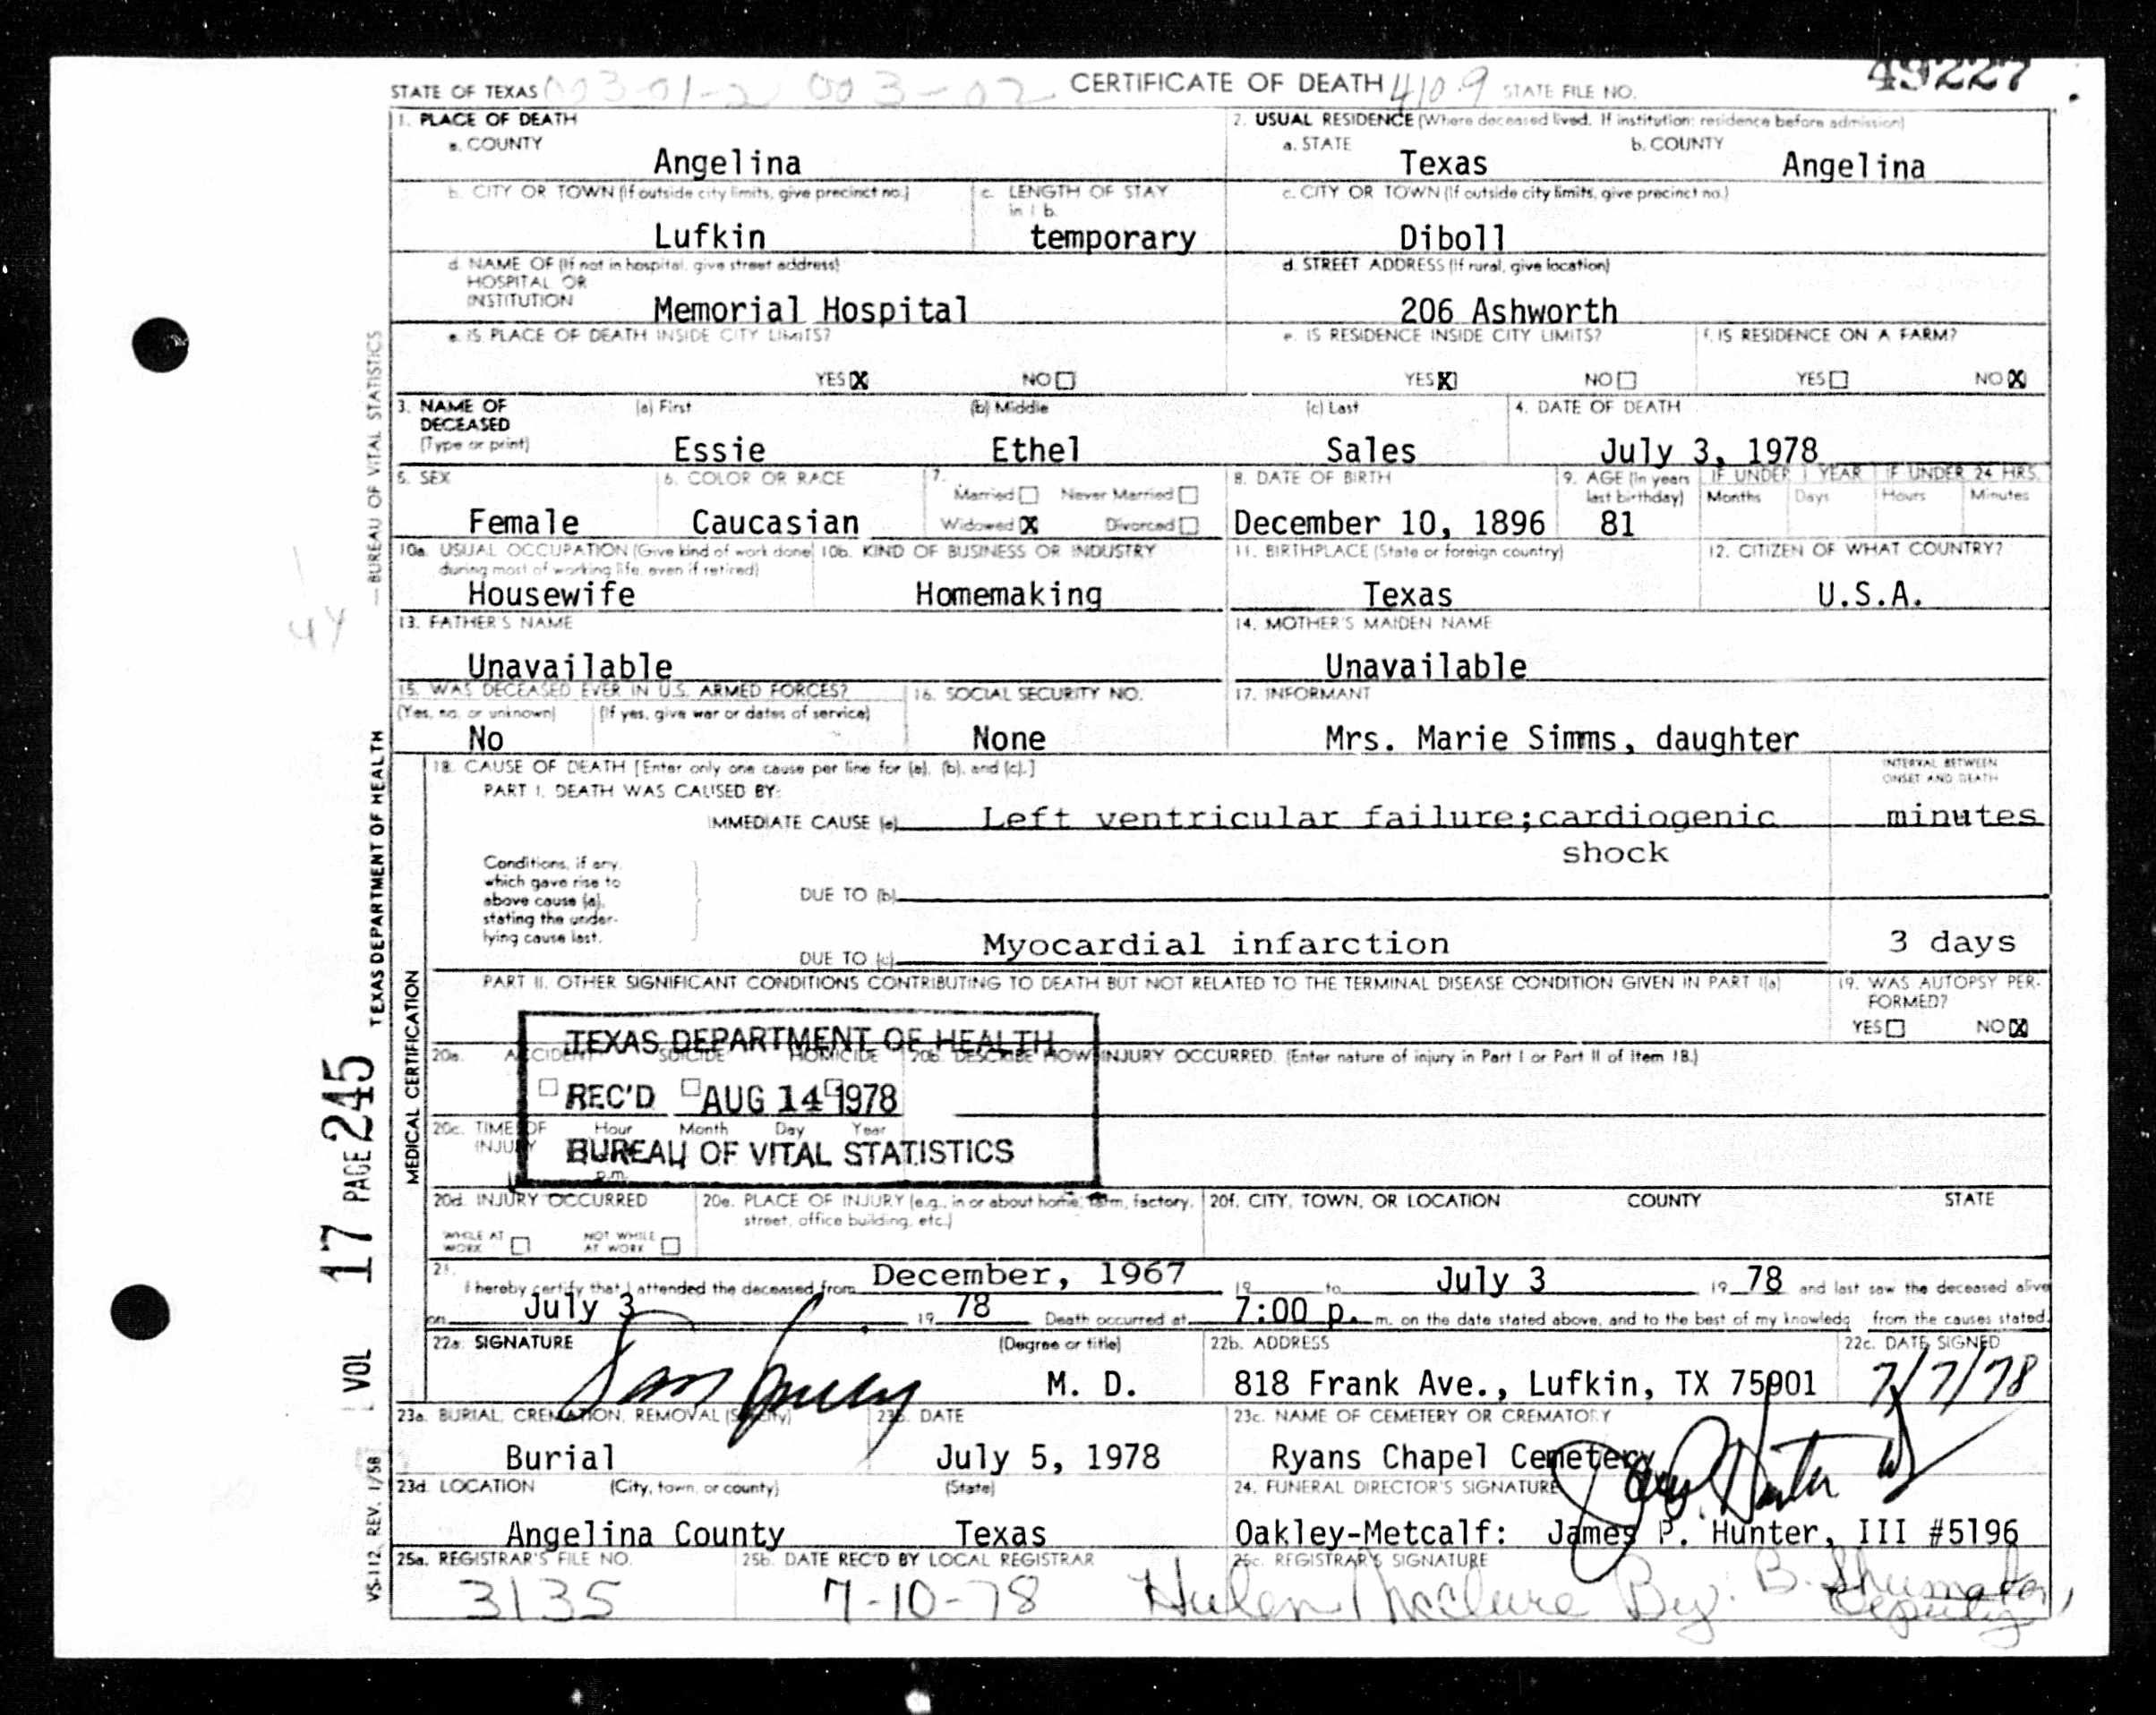 STATE OF TEXAS 003-01-2 003-02 CERTIFICATE OF DEATH 4109 STATE FILE NO. 49227
1. PLACE OF DEATH
a. COUNTY
Angelina
2. USUAL RESIDENCE (Where deceased lived. If institution: residence before admission)
a. STATE
Texas
b. COUNTY
Angelina
b. CITY OR TOWN (If outside city limits, give precinct no.)
Lufkin
c. LENGTH OF STAY
in 1 b.
temporary
c. CITY OR TOWN (If outside city limits, give precinct no.)
Diboll
d. NAME OF (If not in hospital, give street address)
HOSPITAL OR
INSTITUTION
Memorial Hospital
d. STREET ADDRESS (If rural, give location)
206 Ashworth
e. IS PLACE OF DEATH INSIDE CITY LIMITS?
YES X NO
e. IS RESIDENCE INSIDE CITY LIMITS?
YES X NO
f. IS RESIDENCE ON A FARM?
YES NO X
3. NAME OF
DECEASED
(Type or print)
(a) First
Essie
(b) Middle
Ethel
(c) Last
Sales
4. DATE OF DEATH
July 3, 1978
5. SEX
Female
6. COLOR OR RACE
Caucasian
7.
Married Never Married
Widowed X Divorced
8. DATE OF BIRTH
December 10, 1896
9. AGE (In years
last birthday)
81
IF UNDER 1 YEAR
Months Days
IF UNDER 24 HRS.
Hours Minutes
10a. USUAL OCCUPATION (Give kind of work done
during most of working life, even if retired)
Housewife
10b. KIND OF BUSINESS OR INDUSTRY
Homemaking
11. BIRTHPLACE (State or foreign country)
Texas
12. CITIZEN OF WHAT COUNTRY?
U.S.A.
13. FATHER'S NAME
Unavailable
14. MOTHER'S MAIDEN NAME
Unavailable
15. WAS DECEASED EVER IN U.S. ARMED FORCES?
(Yes, no, or unknown) (If yes, give war or dates of service)
No
16. SOCIAL SECURITY NO.
None
17. INFORMANT
Mrs. Marie Simms, daughter
18. CAUSE OF DEATH [Enter only one cause per line for (a), (b), and (c).]
INTERVAL BETWEEN
ONSET AND DEATH
PART I. DEATH WAS CAUSED BY:
IMMEDIATE CAUSE (a) Left ventricular failure;cardiogenic minutes
shock
Conditions, if any,
which gave rise to
above cause (a),
stating the under-
lying cause last.
DUE TO (b)
DUE TO (c) Myocardial infarction 3 days
PART II. OTHER SIGNIFICANT CONDITIONS CONTRIBUTING TO DEATH BUT NOT RELATED TO THE TERMINAL DISEASE CONDITION GIVEN IN PART I(a)
19. WAS AUTOPSY PER-
FORMED?
YES NO X
TEXAS DEPARTMENT OF HEALTH
REC'D AUG 14 1978
BUREAU OF VITAL STATISTICS
20a. ACCIDENT SUICIDE HOMICIDE
20b. DESCRIBE HOW INJURY OCCURRED. (Enter nature of injury in Part I or Part II of Item 18.)
20c. TIME OF
INJURY
Hour Month Day Year
p.m.
20d. INJURY OCCURRED
WHILE AT
WORK
NOT WHILE
AT WORK
20e. PLACE OF INJURY (e.g., in or about home, farm, factory,
street, office building, etc.)
20f. CITY, TOWN, OR LOCATION COUNTY STATE
21.
I hereby certify that I attended the deceased from December, 1967 19 to July 3 19 78 and last saw the deceased alive
on July 3 19 78 Death occurred at 7:00 p. m. on the date stated above, and to the best of my knowledg from the causes stated.
22a. SIGNATURE
(Degree or title)
M. D.
22b. ADDRESS
818 Frank Ave., Lufkin, TX 75901
22c. DATE SIGNED
7/7/78
23a. BURIAL, CREMATION, REMOVAL (Specify)
Burial
23b. DATE
July 5, 1978
23c. NAME OF CEMETERY OR CREMATORY
Ryans Chapel Cemetery
23d. LOCATION (City, town, or county) (State)
Angelina County Texas
24. FUNERAL DIRECTOR'S SIGNATURE
Oakley-Metcalf: James P. Hunter, III #5196
25a. REGISTRAR'S FILE NO.
3135
25b. DATE REC'D BY LOCAL REGISTRAR
7-10-78
25c. REGISTRAR'S SIGNATURE
Helen McClure By. B. Shumaker,
Deputy
44
BUREAU OF VITAL STATISTICS
TEXAS DEPARTMENT OF HEALTH
MEDICAL CERTIFICATION
VOL 17 PAGE 245
VS-112, REV. 1/58